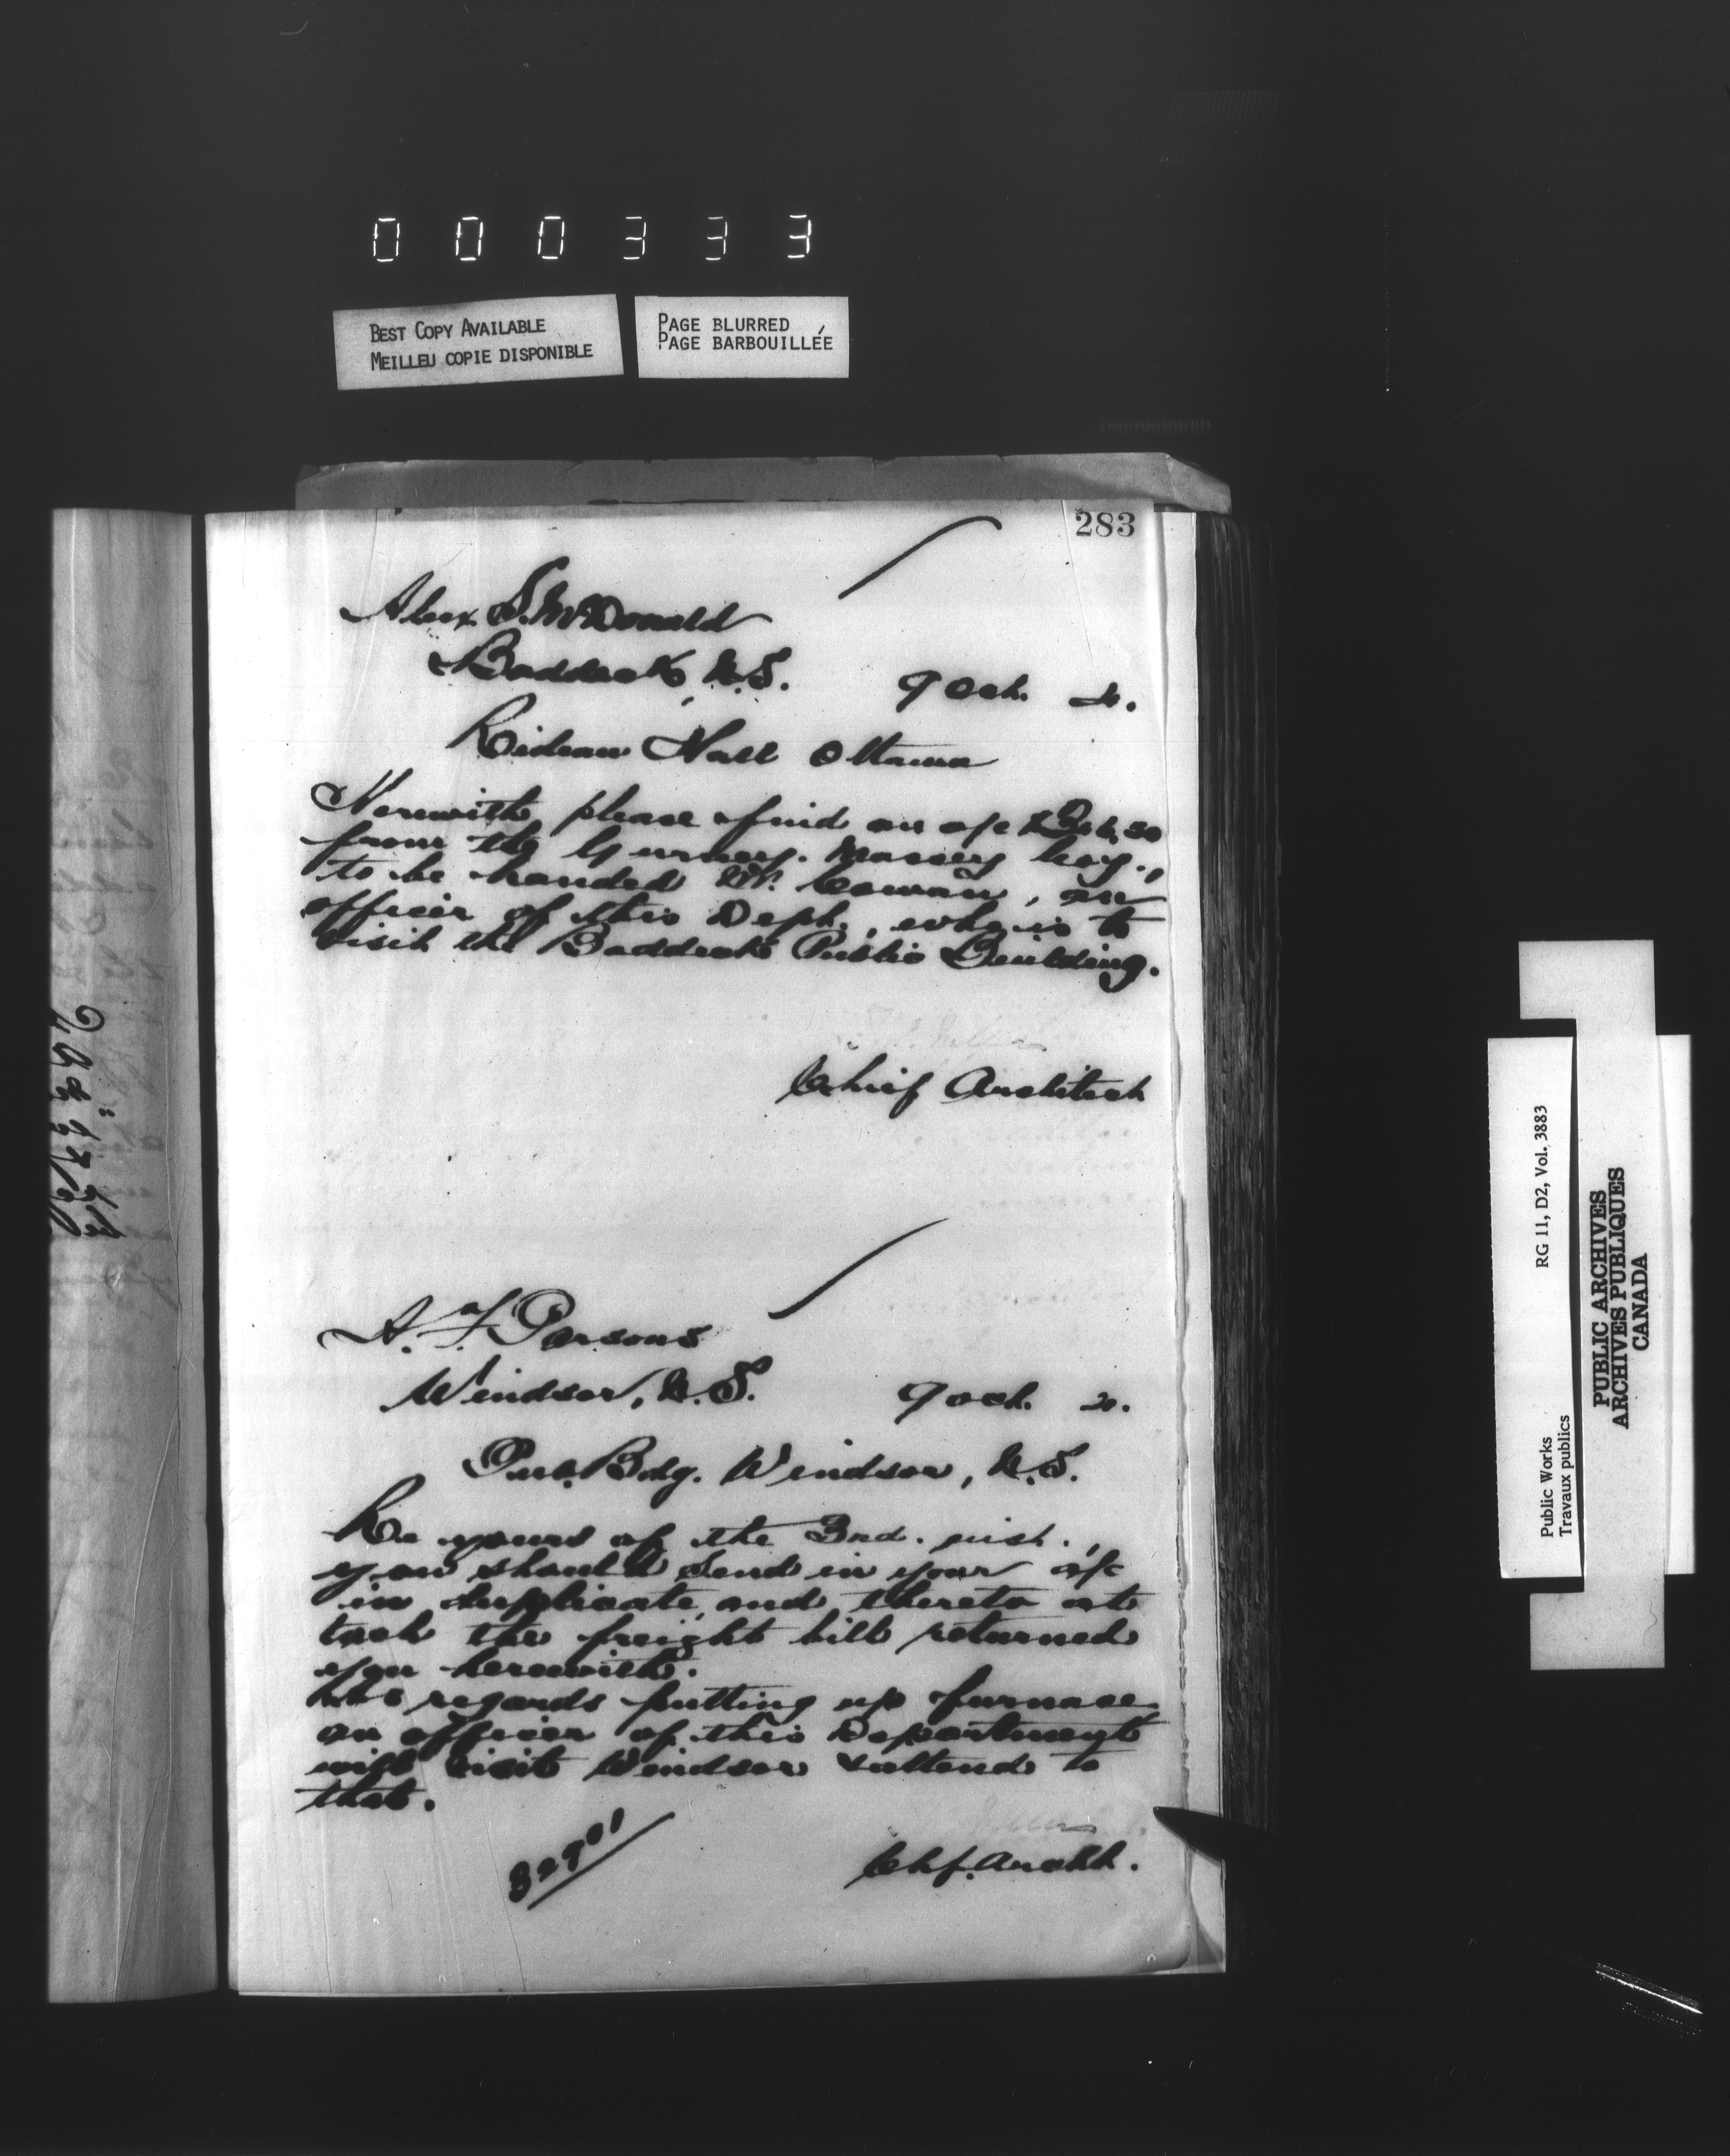 000333
BEST COPY AVAILABLE
MEILLEU COPIE DISPONIBLE
PAGE BLURRED
PAGE BARBOUILLÉE
283
Alex. S. McDonald
Baddeck, N.S. 9 Oct.
Rideau Hall Ottawa
Herewith please find an a/c
from the Gurney. Massey Coy.,
to be handed Mr. Cowan, an
officer of this Dept., who is to
visit the Baddeck Public Building.
Chief Architect
A. F. Parsons
Windsor, N.S. 9 Oct. 20.
Pub. Bdg. Windsor, N.S.
Re yours of the 3rd. inst.,
you should send in your a/c
in duplicate, and thereto at
tach the freight bill returned
you herewith.
As regards putting up furnace
an officer of this Department
will visit Windsor & attend to
that.
Chf. Archt.
32901
Public Works
Travaux publics
RG 11, D2, Vol. 3883
PUBLIC ARCHIVES
ARCHIVES PUBLIQUES
CANADA